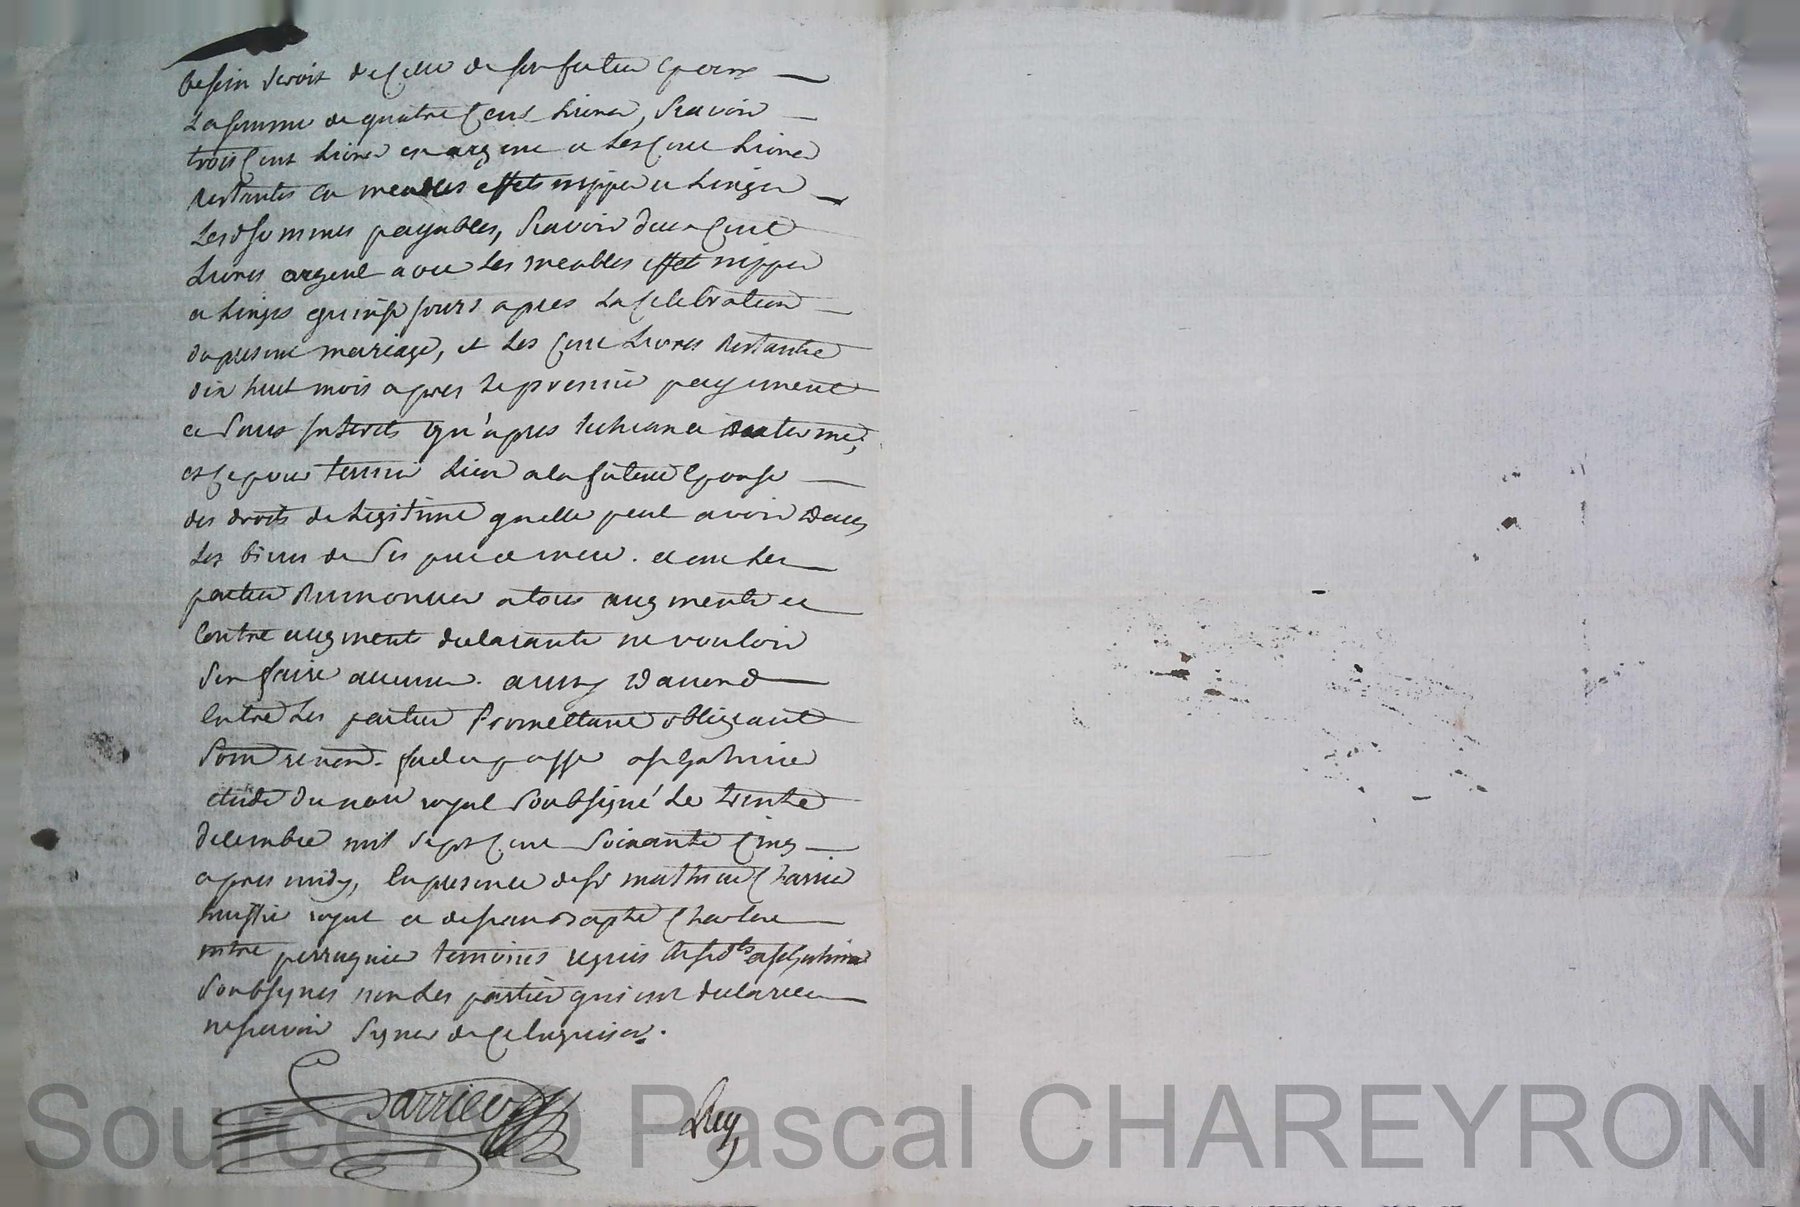 besoin seroit de celle de son futeur epoux
La somme de quatre cens Livres, scavoir
trois cent Livres en argent et Les cent Livres
Restantes en meubles effets nippes et Linges
Lesd sommes payables, scavoir deux cent
Livres argent avec Les meubles effet nippes
et Linges quinse jours apres La celebration
du present mariage, et Les cent Livres Restante
dix huit mois apres Le premier payement
et sans interets qu'apres lecheance du terme,
et ce pour tenir Lieu a la future epouse
des droits de Legitime quelle peut avoir dans
Les biens de ses pere et mere. et ont Les
parties Renoncer a tous augments et
contre augment declarants ne vouloir
sen faire aucune. ainsy d'accord
entre Les parties Promettant obligeant
soum renon. fait et passé
etude du no.re royal soubsigné Le trente
decembre mil sept cent soixante cinq
apres midy, En presence de sr mathieu Charrier
huissier royal et de jean baptte
mtre perruquier temoins requis
soubsignes non Les parties qui ont declarer
ne scavoir signer de ce Enquis.
Rey
Source AD Pascal CHAREYRON